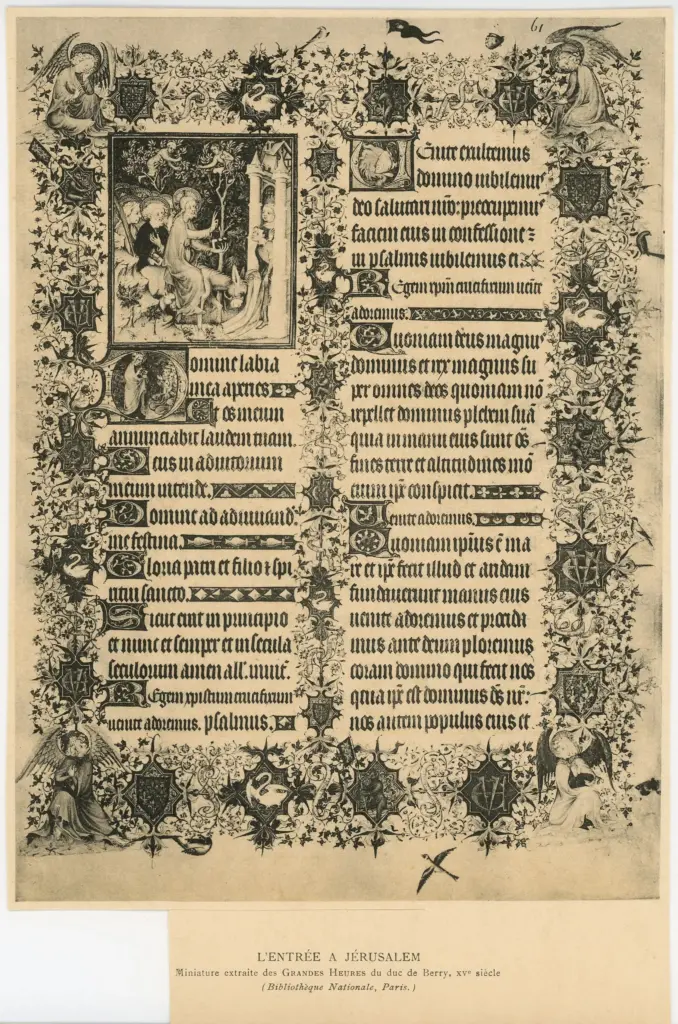 61
Domine labia
mea aperies
Et os meum
annunciabit laudem tuam.
Deus in adiutorium
meum intende.
Domine ad adiuuand'.
me festina.
Gloria patri et filio ⁊ spi
ritui sancto.
Sicut erat in principio
et nunc et semper et in secula
seculorum amen all'. inuit'.
Regem xpistum crucifixum
uenite adoremus. psalmus.
Uenite exultemus
domino iubilemus
deo salutari nr̄o: preocupemus
faciem eius in confessione ⁊
in psalmis iubilemus ei
Regem xpm̄ crucifixum uenite
adoremus.
Quoniam deus magnus
dominus et rex magnus su
per omnes deos quoniam nō
repellet dominus plebem suā
quia in manu eius sunt oēs
fines terre et altitudines mō
cium ip̄e conspicit.
Uenite adoremus.
Quoniam ip̄ius ē ma
re et ip̄e fecit illud et aridam
fundauerunt manus eius
uenite adoremus et procida
mus ante deum ploremus
coram domino qui fecit nos
quia ip̄e est dominus ds̄ nr̄.
nos autem populus eius et
L'ENTRÉE A JÉRUSALEM
Miniature extraite des GRANDES HEURES du duc de Berry, XVe siècle
(Bibliothèque Nationale, Paris.)